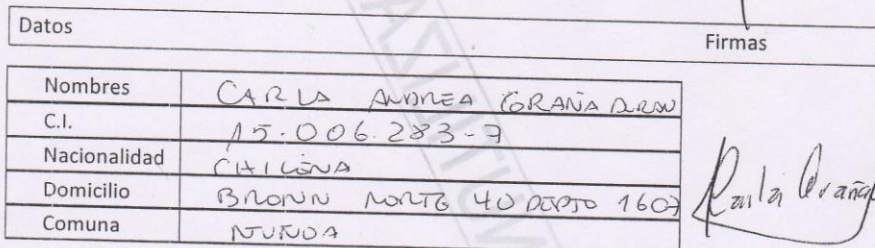 Datos Firmas
Nombres CARLA ANDREA GRAÑA DURAN
C.I. 15.006.283-7
Nacionalidad CHILENA
Domicilio BROWN NORTE 40 DEPTO 1607
Comuna ÑUÑOA
Carla Graña
INUTILIZA